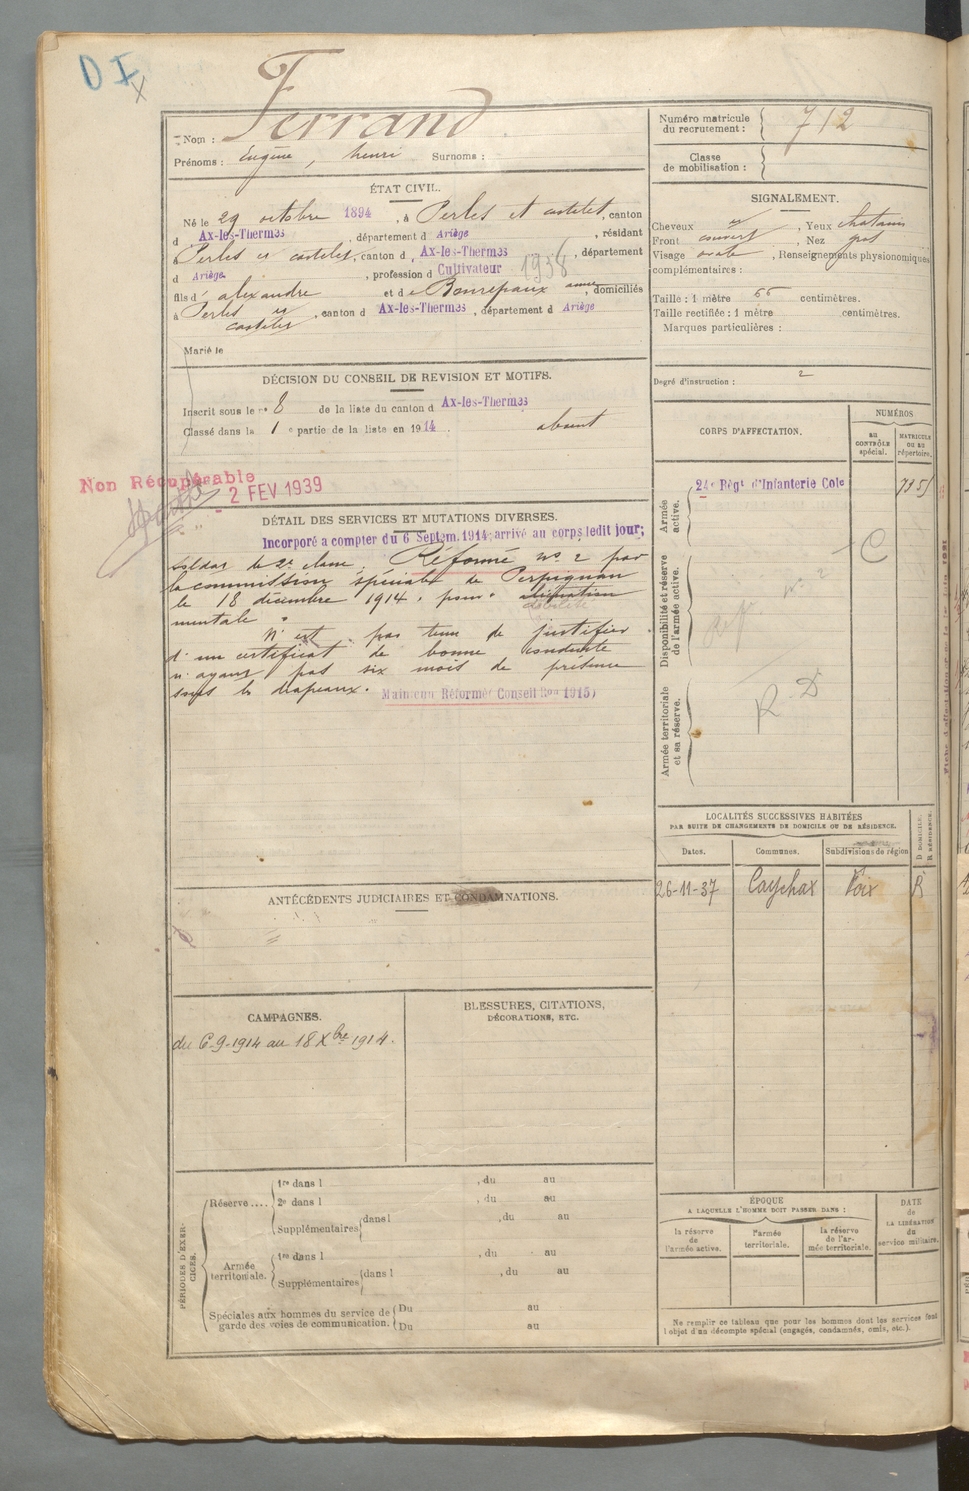 D I
X
Nom : Ferrand
Prénoms : Eugène, henri Surnoms :
ÉTAT CIVIL.
Né le 29 octobre 1894, à Perles et castelet, canton
d Ax-les-Thermes, département d Ariège, résidant
à Perles et castelet, canton d, Ax-les-Thermes, département
d Ariège, profession d Cultivateur 1938
fils d' alexandre et de Bonrepaux anne, domiciliés
à Perles et castelet, canton d Ax-les-Thermes, département d Ariège
Marié le
DÉCISION DU CONSEIL DE REVISION ET MOTIFS.
Inscrit sous le n° 8 de la liste du canton d Ax-les-Thermes
Classé dans la 1 e partie de la liste en 1914. absent
Non Récupérable
2 FEV 1939
DÉTAIL DES SERVICES ET MUTATIONS DIVERSES.
Incorporé a compter du 6 Septem. 1914; arrivé au corps ledit jour;
soldat de 2e classe. Réformé n° 2 par
la commission spéciale de Perpignan
le 18 décembre 1914. pour aliénation
débilité
mentale
N'est pas tenu de justifier
d'un certificat de bonne conduite
n'ayant pas six mois de présence
sous les drapeaux. Maintenu Réformé (Conseil Ron 1915)
ANTÉCÉDENTS JUDICIAIRES ET CONDAMNATIONS.
CAMPAGNES.
du 6-9-1914 au 18 Xbre 1914.
BLESSURES, CITATIONS,
DÉCORATIONS, ETC.
PÉRIODES D'EXERCICES.
Réserve....
1re dans l , du au
2e dans l , du au
Supplémentaires dans l , du au
Armée territoriale.
1re dans l , du au
Supplémentaires dans l , du au
Spéciales aux hommes du service de
garde des voies de communication.
Du au
Du au
Numéro matricule
du recrutement : 712
Classe
de mobilisation :
SIGNALEMENT.
Cheveux et, Yeux chatains
Front couvert, Nez gros
Visage ovale, Renseignements physionomiques
complémentaires :
Taille : 1 mètre 66 centimètres.
Taille rectifiée : 1 mètre centimètres.
Marques particulières :
Degré d'instruction : 2
CORPS D'AFFECTATION.
NUMÉROS
AU CONTRÔLE spécial.
MATRICULE OU AU répertoire.
Armée active.
24e Régt d'Infanterie Cole
7151
C
Disponibilité et réserve de l'armée active.
Ref. n° 2
Armée territoriale et sa réserve.
R D
LOCALITÉS SUCCESSIVES HABITÉES
PAR SUITE DE CHANGEMENTS DE DOMICILE OU DE RÉSIDENCE.
Dates. Communes. Subdivisions de région
D DOMICILE.
R RÉSIDENCE.
26-11-37 Caychax Foix R
ÉPOQUE
A LAQUELLE L'HOMME DOIT PASSER DANS :
la réserve de l'armée active.
l'armée territoriale.
la réserve de l'armée territoriale.
DATE de LA LIBÉRATION du service militaire.
Ne remplir ce tableau que pour les hommes dont les services font
l'objet d'un décompte spécial (engagés, condamnés, omis, etc.).